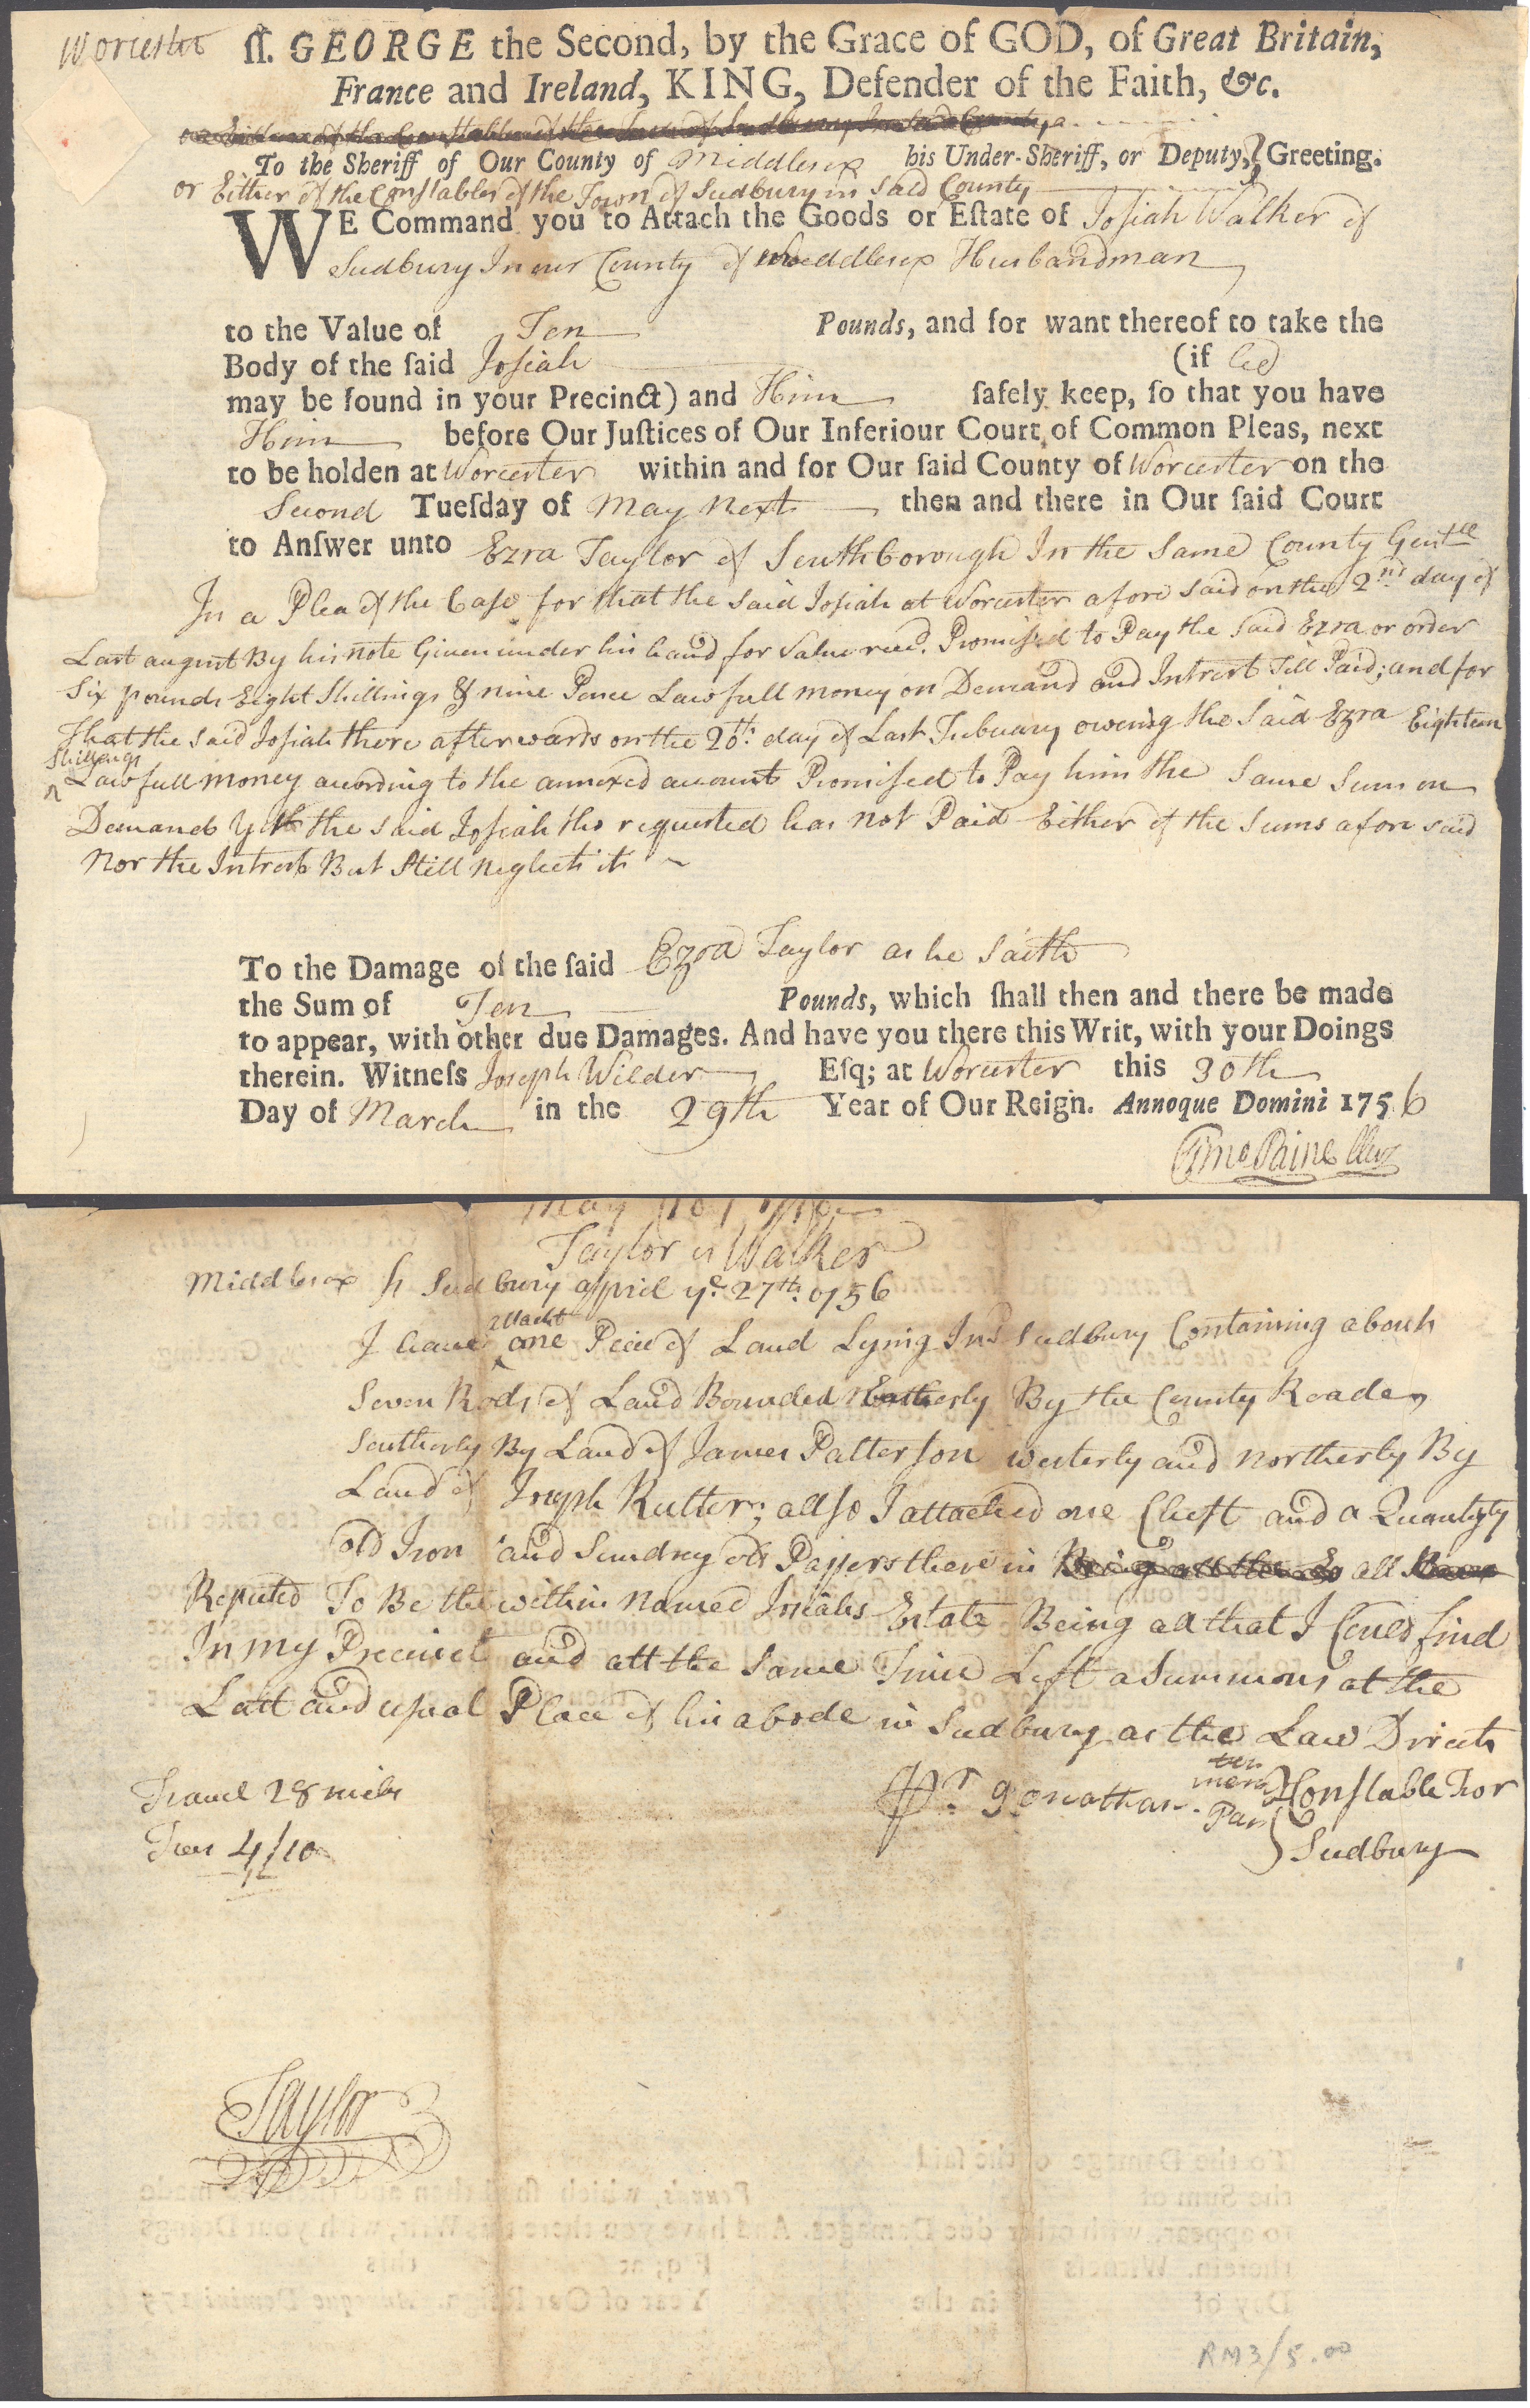 Worcester ſſ. GEORGE the Second, by the Grace of GOD, of Great Britain,
France and Ireland, KING, Defender of the Faith, &c.
To the Sheriff of Our County of Middlesex his Under-Sheriff, or Deputy, Greeting.
or Either of the Constables of the Town of Sudbury in said County
WE Command you to Attach the Goods or Eſtate of Josiah Walker of
Sudbury In our County of Meddlesex Husbandman
to the Value of Ten Pounds, and for want thereof to take the
Body of the ſaid Josiah (if he
may be found in your Precinct) and Him ſafely keep, ſo that you have
Him before Our Juſtices of Our Inferiour Court of Common Pleas, next
to be holden at Worcester within and for Our ſaid County of Worcester on the
Second Tueſday of May next then and there in Our ſaid Court
to Anſwer unto Ezra Taylor of Southborough In the Same County Gentle
In a Plea of the Case for that the said Josiah at Worcester afore said on the 2nd day of
Last august By his note Given under his hand for Value recd. Promised to Pay the said Ezra or order
Six pounds Eight Shillings & nine Pence Lawfull money on Demand and Intrest Till Paid; and for
That the said Josiah there afterwards on the 20th. day of Last Febuary oweing the said Ezra Eighteen
Shillings
Lawfull money according to the annexed account Promised to Pay him the Same Sum on
Demand Yet the said Josiah tho requested has not Paid Either of the Sums afore said
Nor the Intrest But Still neglects it
To the Damage of the ſaid Ezra Taylor as he Saith
the Sum of Ten Pounds, which ſhall then and there be made
to appear, with other due Damages. And have you there this Writ, with your Doings
therein. Witneſs Joseph Wilder Eſq; at Worcester this 30th
Day of March in the 29th Year of Our Reign. Annoque Domini 1756
Timo Paine Cler
May
Taylor vs Walker
Middlesex ſſ Sudbury appriel ye 27th. 1756
attacht
I have one Peice of Land Lying In sd Sudbury Containing about
Seven Rods of Land Bounded Easterly By the County Roade
Southerly By Land of James Patterson westerly and northerly By
Land of Joseph Rutter; allso I attached one Chest and a Quantyty
old Iron and Sundrey old Papers there in all
Reputed To Be the within named Josiahs Estate Being all that I Could find
In my Precinct and att the Same Time Left a Summons at the
Last and usual Place of his abode in Sudbury as the Law Directs
Pr. Jonathan Parmenter Constable For
Sudbury
Travel 28 miles
Fees 4/10
Taylor
RM3/5.00